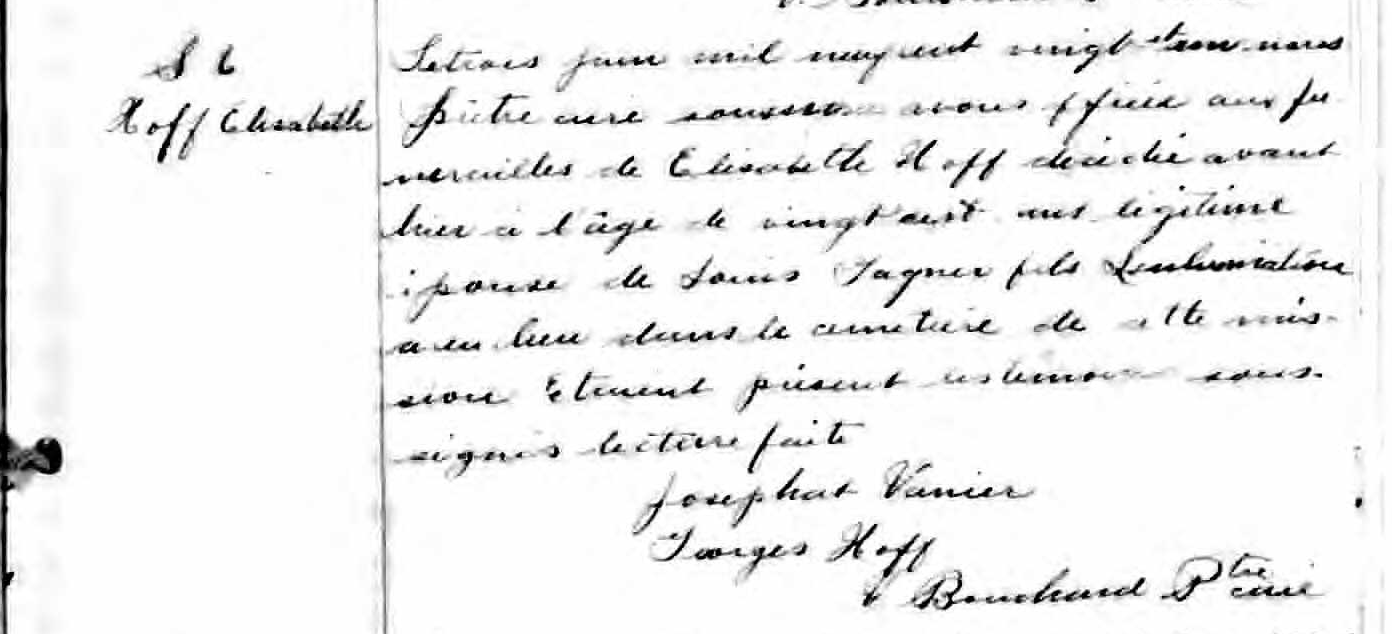 S 6
Hoff Elisabeth
Le trois juin mil neuf cent vingt et un nous
prêtre curé soussigné avons officié aux fu-
nerailles de Elisabeth Hoff décédé avant
hier à l'âge de vingt ans légitime
épouse de Louis Tagner fils L'inhumation
a eu lieu dans le cimetière de cette mis-
sion Etaient présent les témoins sous-
signés lecture faite
Josephat Vanier
Georges Hoff
Bouchard Ptre curé